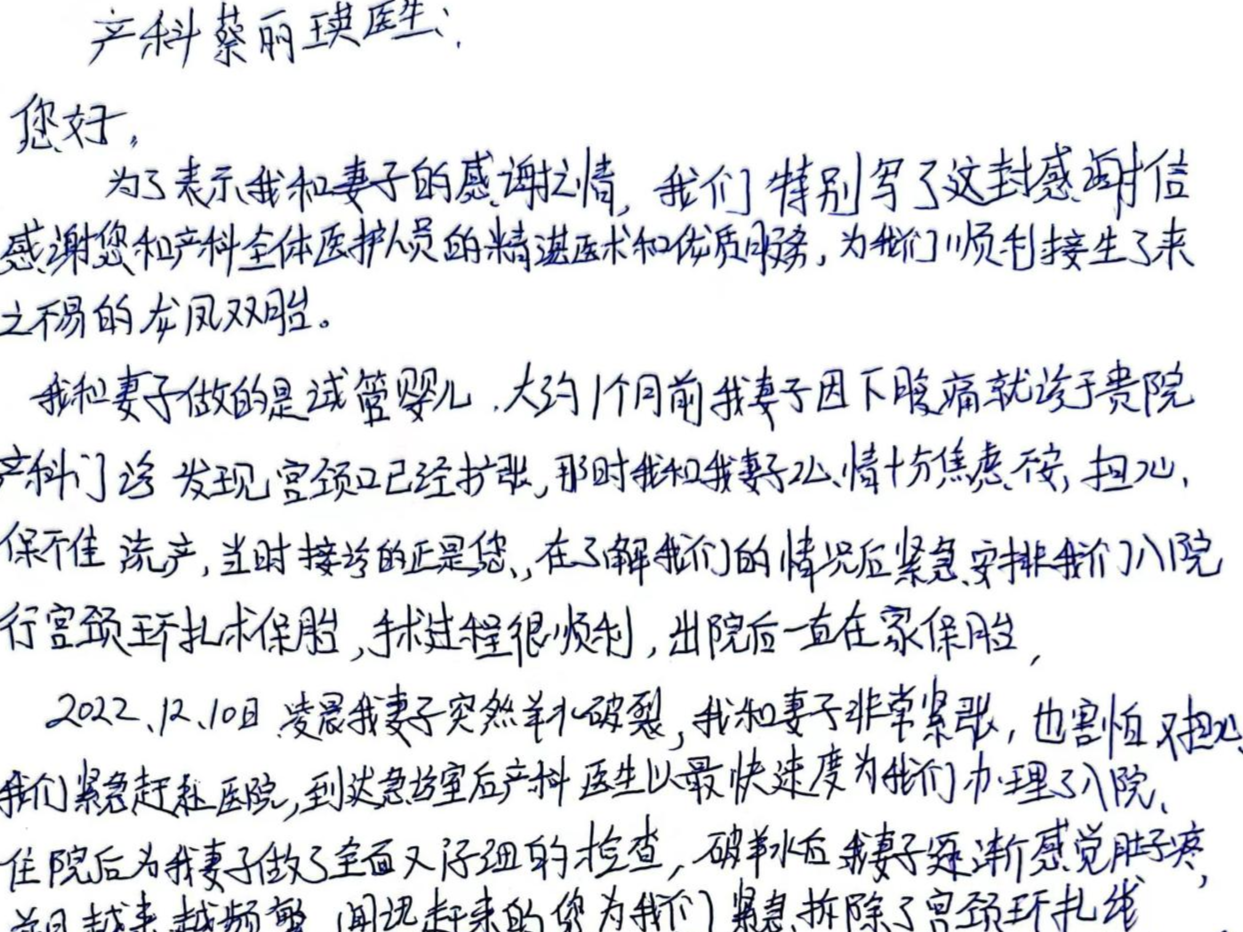 产科蔡丽瑛医生:
您好,
为了表示我和妻子的感谢之情,我们特别写了这封感谢信
感谢您和产科全体医护人员的精湛医术和优质服务,为我们顺利接生了来
之不易的龙凤双胎。
我和妻子做的是试管婴儿.大约1个月前我妻子因下腹痛就诊于贵院
产科门诊 发现宫颈口已经扩张,那时我和我妻子心情十分焦虑不安,担心,
保不住流产,当时接诊的正是您,在了解我们的情况后紧急安排我们入院
行宫颈环扎术保胎,手术过程很顺利,出院后一直在家保胎,
2022.12.10日凌晨我妻子突然羊水破裂,我和妻子非常紧张,也害怕又担心
我们紧急赶赴医院,到达急诊室后产科医生以最快速度为我们办理了入院.
住院后为我妻子做了全面又仔细的检查,破羊水后我妻子逐渐感觉肚子疼,
并且越来越频繁 闻讯赶来的您为我们紧急拆除了宫颈环扎线